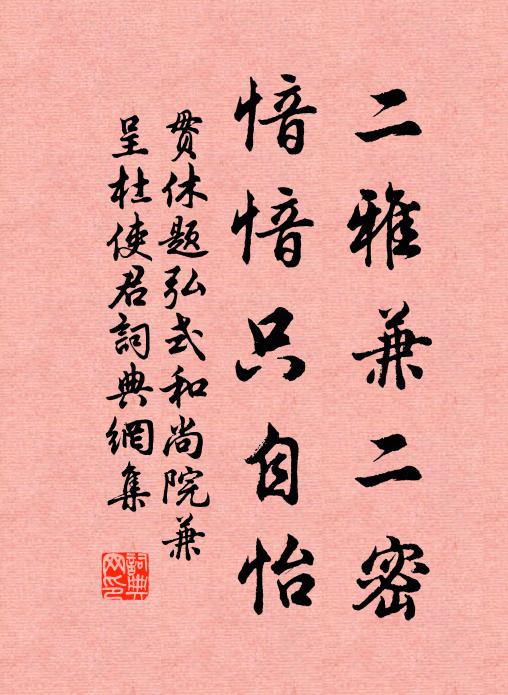 二雅兼二密
愔愔只自怡
貫休題弘式和尚院兼
呈杜使君詞典網集
詞典
网印